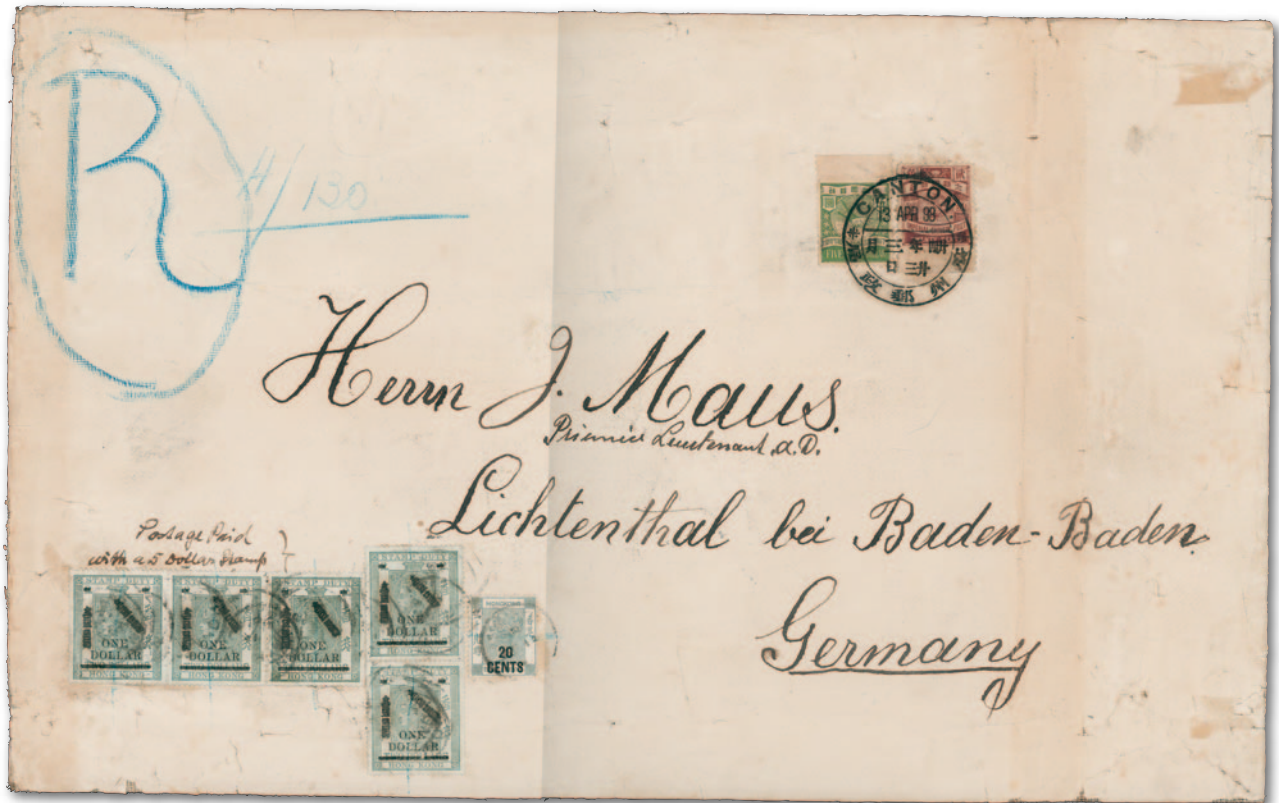 R
4/130
CANTON.
13 APR 98
月三年
日三卅
廣州郵政
Herrn J. Maus.
Premier Lieutenant a.D.
Lichtenthal bei Baden-Baden.
Germany
Postage Paid
with a 5 Dollar Stamp
STAMP DUTY
ONE
DOLLAR
HONG KONG
STAMP DUTY
ONE
DOLLAR
HONG KONG
STAMP DUTY
ONE
DOLLAR
HONG KONG
STAMP DUTY
ONE
DOLLAR
HONG KONG
20
CENTS
ONE
DOLLAR
HONG KONG